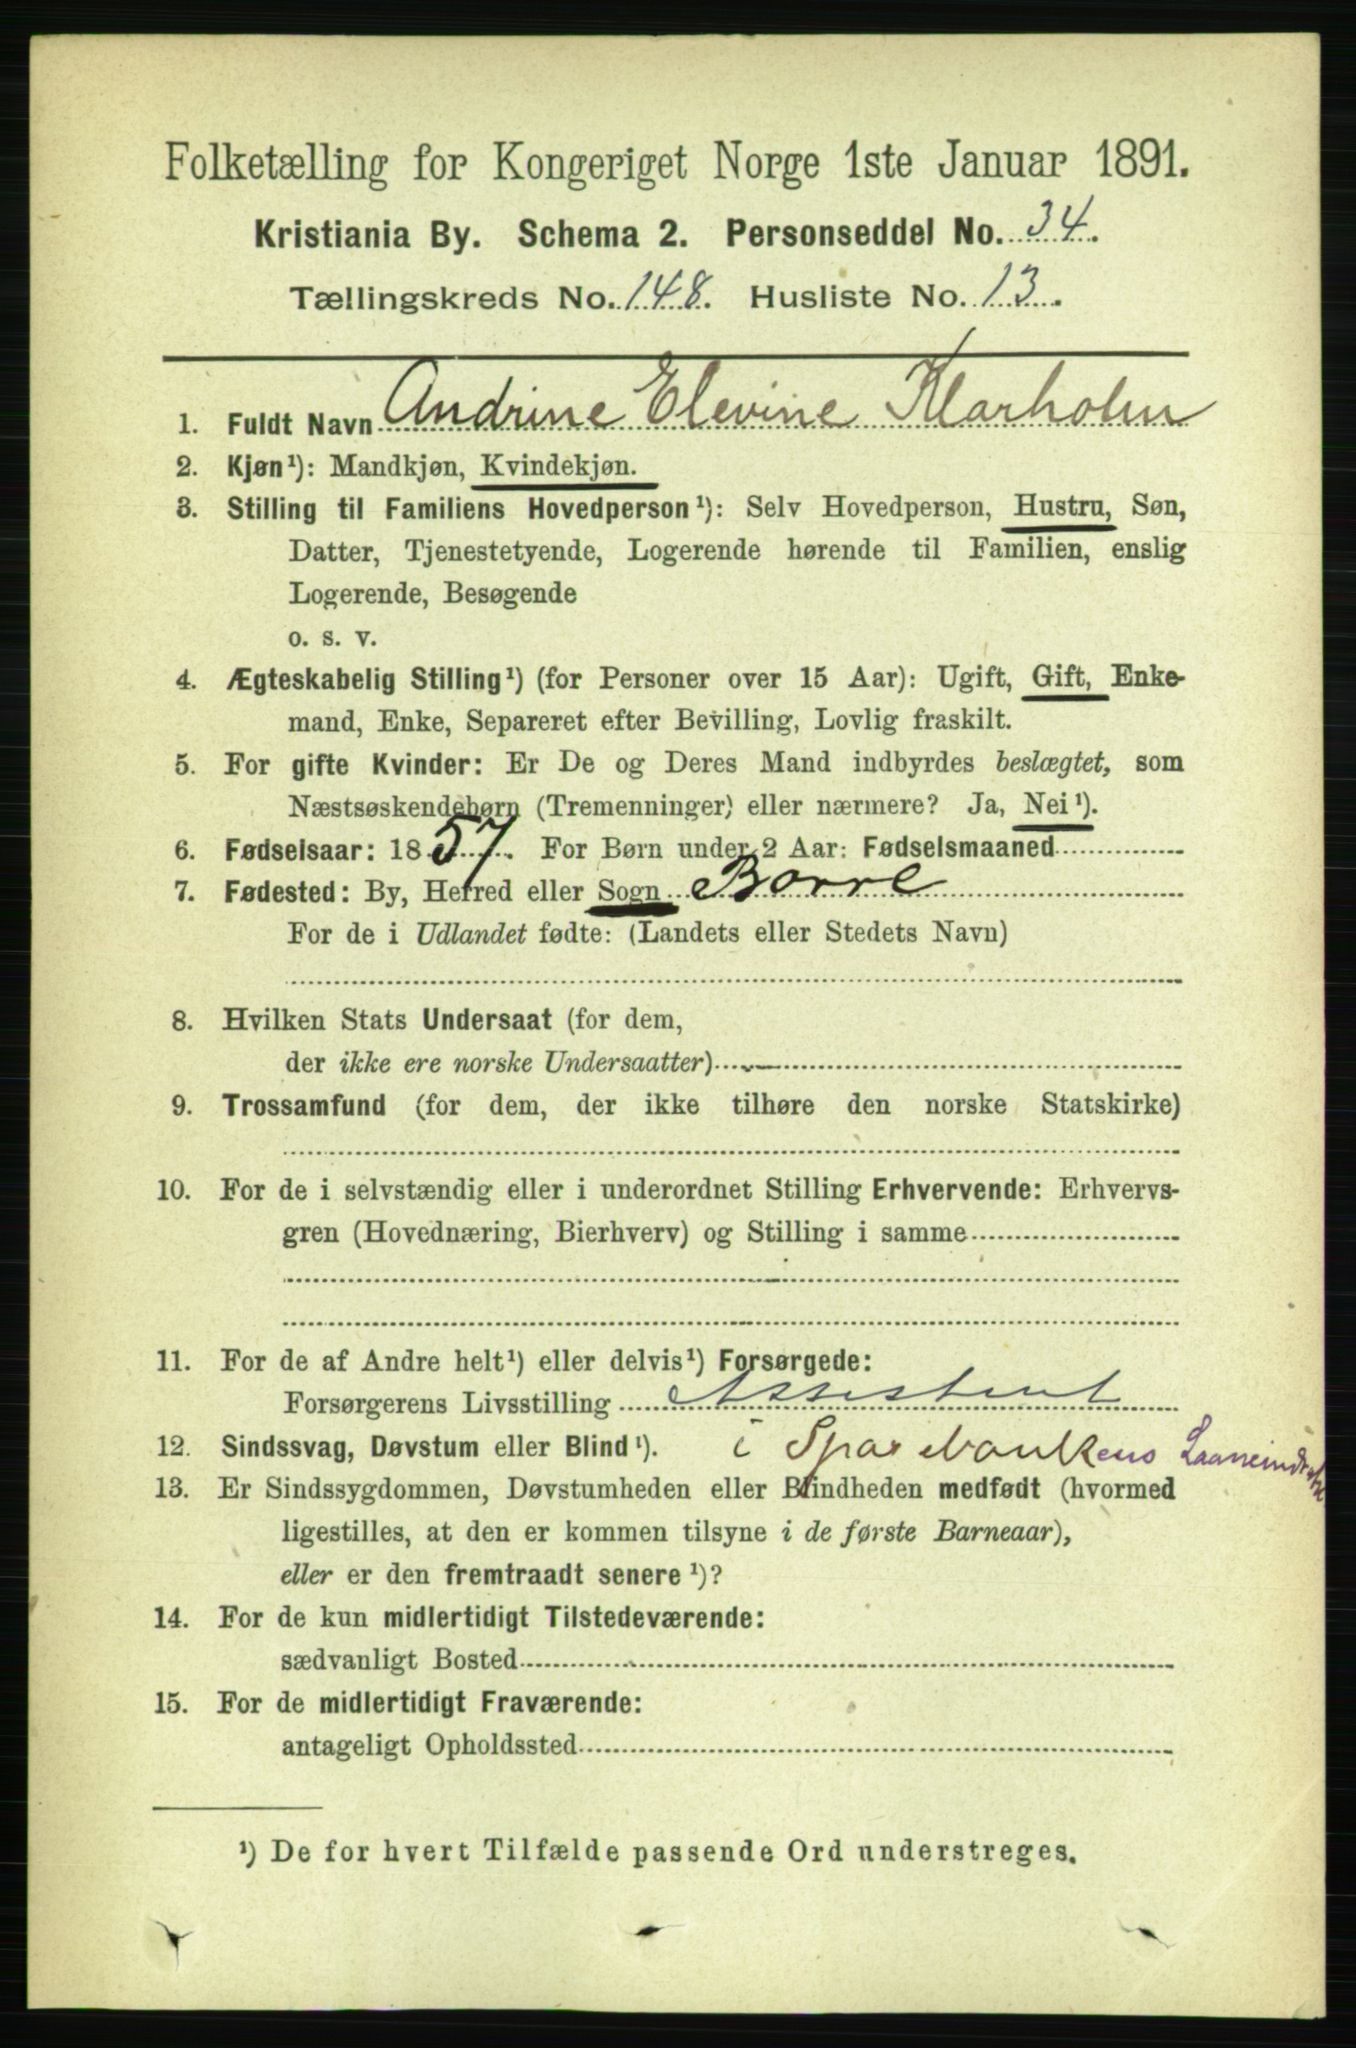 Folketælling for Kongeriget Norge 1ste Januar 1891.
Kristiania By. Schema 2. Personseddel No. 34.
Tællingskreds No. 148. Husliste No. 13.
1. Fuldt Navn Andrine Elevine Klarholm
2. Kjøn¹): Mandkjøn, Kvindekjøn.
3. Stilling til Familiens Hovedperson¹): Selv Hovedperson, Hustru, Søn,
Datter, Tjenestetyende, Logerende hørende til Familien, enslig
Logerende, Besøgende
o. s. v.
4. Ægteskabelig Stilling¹) (for Personer over 15 Aar): Ugift, Gift, Enke-
mand, Enke, Separeret efter Bevilling, Lovlig fraskilt.
5. For gifte Kvinder: Er De og Deres Mand indbyrdes beslægtet, som
Næstsøskendebørn (Tremenninger) eller nærmere? Ja, Nei¹).
6. Fødselsaar: 1857. For Børn under 2 Aar: Fødselsmaaned
7. Fødested: By, Herred eller Sogn Borre
For de i Udlandet fødte: (Landets eller Stedets Navn)
8. Hvilken Stats Undersaat (for dem,
der ikke ere norske Undersaatter)
9. Trossamfund (for dem, der ikke tilhøre den norske Statskirke)
10. For de i selvstændig eller i underordnet Stilling Erhvervende: Erhvervs-
gren (Hovednæring, Bierhverv) og Stilling i samme
11. For de af Andre helt¹) eller delvis¹) Forsørgede:
Forsørgerens Livsstilling Assistent
12. Sindssvag, Døvstum eller Blind¹). i Sparebankens
13. Er Sindssygdommen, Døvstumheden eller Blindheden medfødt (hvormed
ligestilles, at den er kommen tilsyne i de første Barneaar),
eller er den fremtraadt senere¹)?
14. For de kun midlertidigt Tilstedeværende:
sædvanligt Bosted
15. For de midlertidigt Fraværende:
antageligt Opholdssted
¹) De for hvert Tilfælde passende Ord understreges.